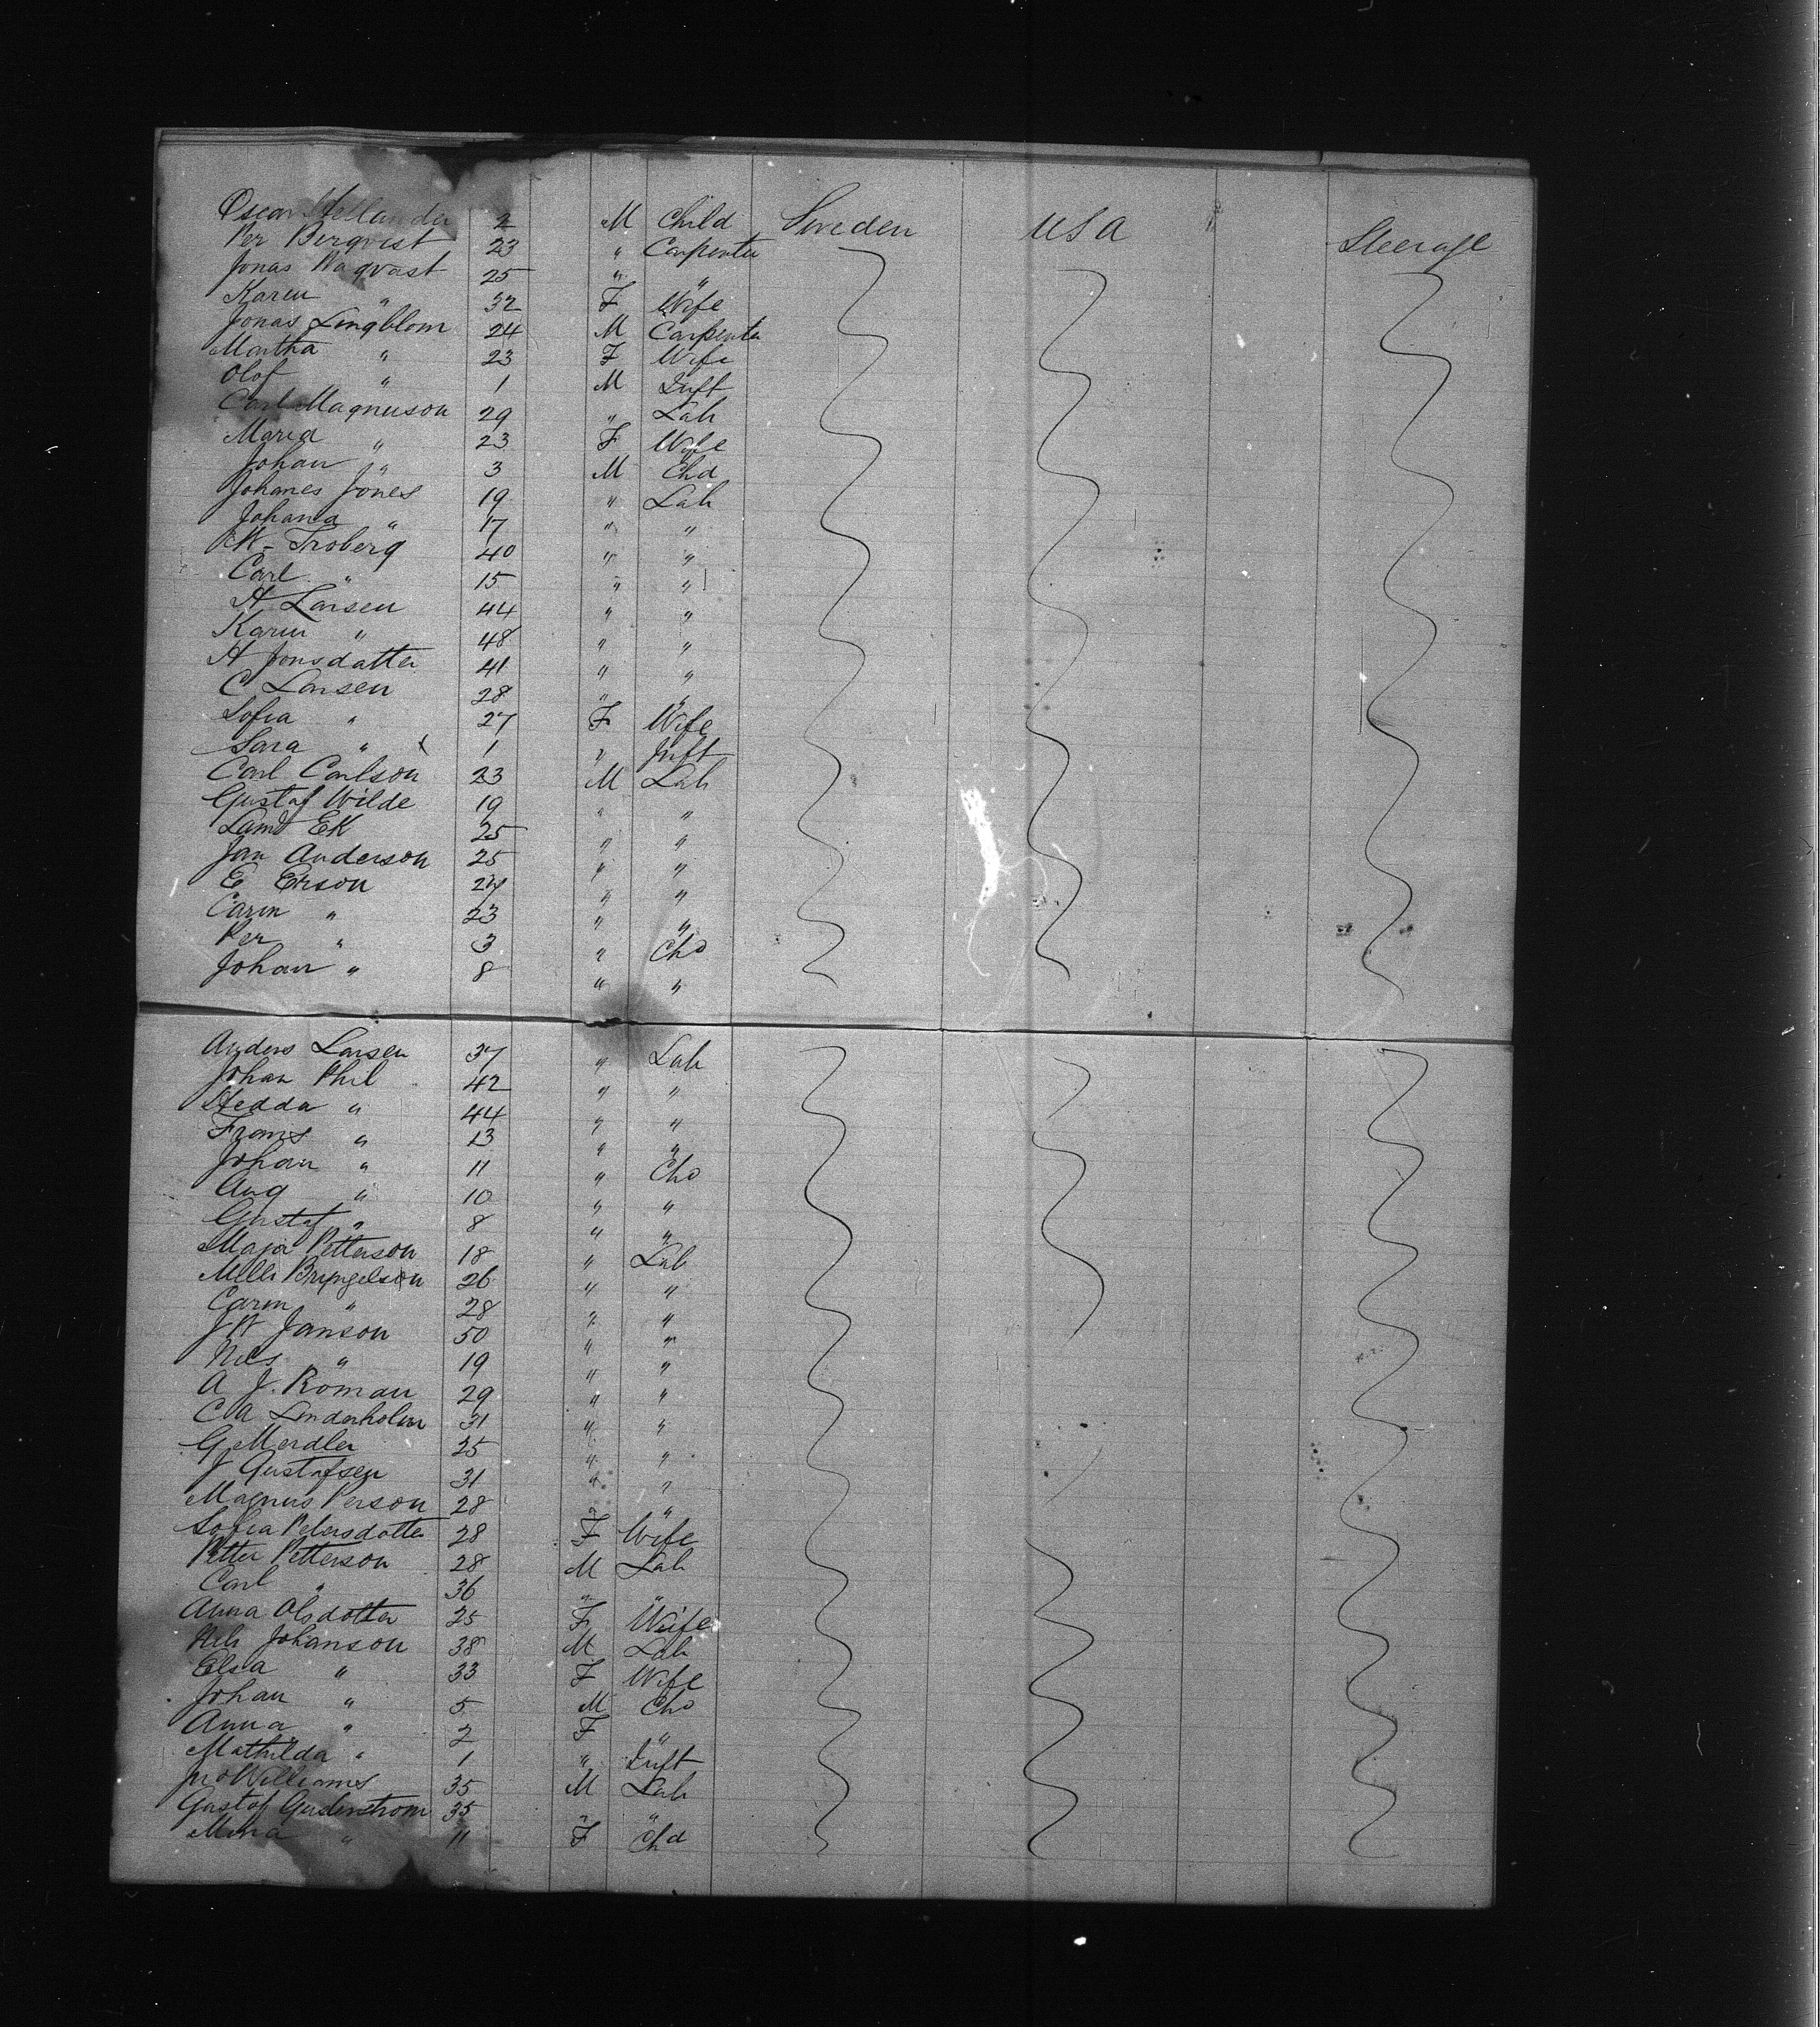 Oscar Hellander 2 M Child Sweden USA Steerage
Per Berqvist 23 " Carpenter
Jonas Waqvast 25 " "
Karen " 32 F Wife
Jonas Lingblom 24 M Carpenter
Martha " 23 F Wife
Olof " 1 M Inft
Carl Magnuson 29 " Lab
Maria " 23 F Wife
Johan " 3 M Chd
Johanes Jönes 19 " Lab
Johana " 17 " "
W- Troberg 40 " "
Carl " 15 " "
H Larsen 44 " "
Karin " 48 " "
H Jonsdatter 41 " "
C Larsen 28 " "
Sofia " 27 F Wife
Sara " 1 " Inft
Carl Carlson 23 M Lab
Gustaf Wilde 19 " "
EK 25 " "
Jan Anderson 25 " "
E Erson 27 " "
Carin " 23 " "
Per " 3 " Chd
Johan " 8 " "
Anders Larsen 37 " Lab
Johan Phil 42 " "
Hedda " 44 " "
Frans " 13 " "
Johan " 11 " Chd
Aug " 10 " "
Gustaf " 8 " "
Maja Petterson 18 " Lab
Bryngelson 26 " "
Carin " 28 " "
J W Janson 50 " "
Nils " 19 " "
A J. Roman 29 " "
C A Linderholm 31 " "
G Merdler 25 " "
J Gustafsen 31 " "
Magnus Person 28 " "
Sofia Petersdotter 28 F Wife
Petter Petterson 28 M Lab
Carl " 36 " "
Anna Olsdotter 25 F Wife
Nils Johanson 38 M Lab
Elsa " 33 F Wife
Johan " 5 M Chd
Anna " 2 F "
Mathilda " 1 " Inft
Jno Williams 35 M Lab
Gustaf Guderstrom 35 " "
Mina " 11 F Chd